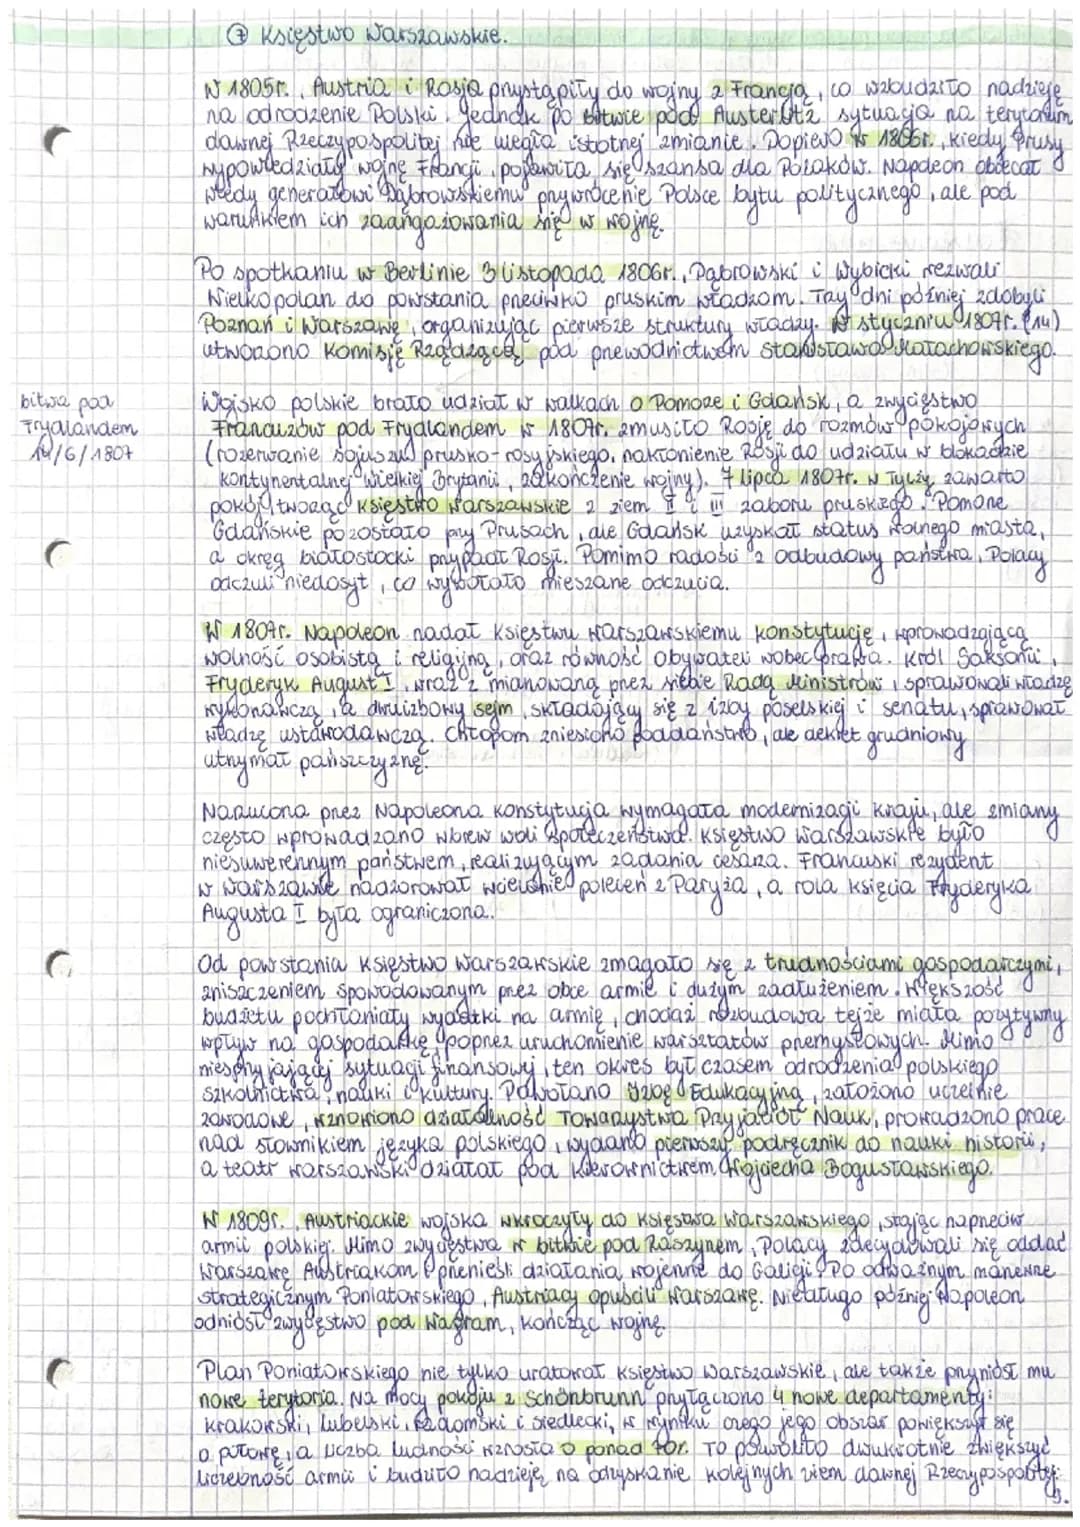 ⑦ Księstwo Warszawskie.
W 1805r., Austria i Rosja przystąpiły do wojny z Francją, co wzbudziło nadzieję
na odrodzenie Polski. Jednak po bitwie pod Austerlitz sytuacja na terytorium
dawnej Rzeczypospolitej nie uległa istotnej zmianie. Dopiero w 1806r., kiedy Prusy
wypowiedziały wojnę Francji, pojawiła się szansa dla Polaków. Napoleon obiecał
wtedy generałowi Dąbrowskiemu przywrócenie Polsce bytu politycznego, ale pod
warunkiem ich zaangażowania się w wojnę.
Po spotkaniu w Berlinie 3 listopada 1806r., Dąbrowski i Wybicki wezwali
Wielkopolan do powstania przeciwko pruskim władzom. Trzy dni później zdobyli
Poznań i Warszawę, organizując pierwsze struktury władzy. W styczniu 1807r. (14)
utworzono Komisję Rządzącą pod przewodnictwem Stanisława Małachowskiego.
bitwa pod
Frydlandem
14/6/1807
Wojsko polskie brało udział w walkach o Pomorze i Gdańsk, a zwycięstwo
Francuzów pod Frydlandem w 1807r. zmusiło Rosję do rozmów pokojowych
(rozerwanie sojuszu prusko-rosyjskiego, nakłonienie Rosji do udziału w blokadzie
kontynentalnej Wielkiej Brytanii, zakończenie wojny). 7 lipca 1807r. w Tylży zawarto
pokój tworząc Księstwo Warszawskie z ziem II i III zaboru pruskiego. Pomorze
Gdańskie pozostało przy Prusach, ale Gdańsk uzyskał status wolnego miasta,
a okręg białostocki przypadł Rosji. Pomimo radości z odbudowy państwa, Polacy
odczuli niedosyt, co wywołało mieszane odczucia.
W 1807r. Napoleon nadał Księstwu Warszawskiemu konstytucję, wprowadzającą
wolność osobistą i religijną, oraz równość obywateli wobec prawa. Król Saksonii,
Fryderyk August I, wraz z mianowaną przez siebie Radą Ministrów, sprawowali władzę
wykonawczą, a dwuizbowy sejm, składający się z izby poselskiej i senatu, sprawował
władzę ustawodawczą. Chłopom zniesiono poddaństwo, ale dekret grudniowy
utrzymał pańszczyznę.
Narzucona przez Napoleona konstytucja wymagała modernizacji kraju, ale zmiany
często wprowadzano wbrew woli społeczeństwa. Księstwo Warszawskie było
niesuwerennym państwem, realizującym zadania cesarza. Francuski rezydent
w Warszawie nadzorował wcielanie poleceń z Paryża, a rola księcia Fryderyka
Augusta I była ograniczona.
Od powstania Księstwo Warszawskie zmagało się z trudnościami gospodarczymi,
zniszczeniem spowodowanym przez obce armie i dużym zadłużeniem. Większość
budżetu pochłaniały wydatki na armię, chociaż rozbudowa tejże miała pozytywny
wpływ na gospodarkę poprzez uruchomienie warsztatów przemysłowych. Mimo
niesprzyjającej sytuacji finansowej, ten okres był czasem odrodzenia polskiego
szkolnictwa, nauki i kultury. Powołano Izbę Edukacyjną, założono uczelnie
zawodowe, wznowiono działalność Towarzystwa Przyjaciół Nauk, prowadzono prace
nad słownikiem języka polskiego, wydano pierwszy podręcznik do nauki historii,
a teatr warszawski działał pod kierownictwem Wojciecha Bogusławskiego.
W 1809r., Austriackie wojska wkroczyły do Księstwa Warszawskiego, stając naprzeciw
armii polskiej. Mimo zwycięstwa w bitwie pod Raszynem, Polacy zdecydowali się oddać
Warszawę Austriakom i przenieśli działania wojenne do Galicji. Po odważnym manewrze
strategicznym Poniatowskiego, Austriacy opuścili Warszawę. Niedługo później Napoleon
odniósł zwycięstwo pod Wagram, kończąc wojnę.
Plan Poniatowskiego nie tylko uratował Księstwo Warszawskie, ale także przyniósł mu
nowe terytoria. Na mocy pokoju z Schönbrunn przyłączono 4 nowe departamenty:
krakowski, lubelski, radomski i siedlecki, w wyniku czego jego obszar powiększył się
o połowę, a liczba ludności wzrosła o ponad 70r. To pozwoliło dwukrotnie zwiększyć
liczebność armii i budziło nadzieję na odzyskanie kolejnych ziem dawnej Rzeczypospolitej.